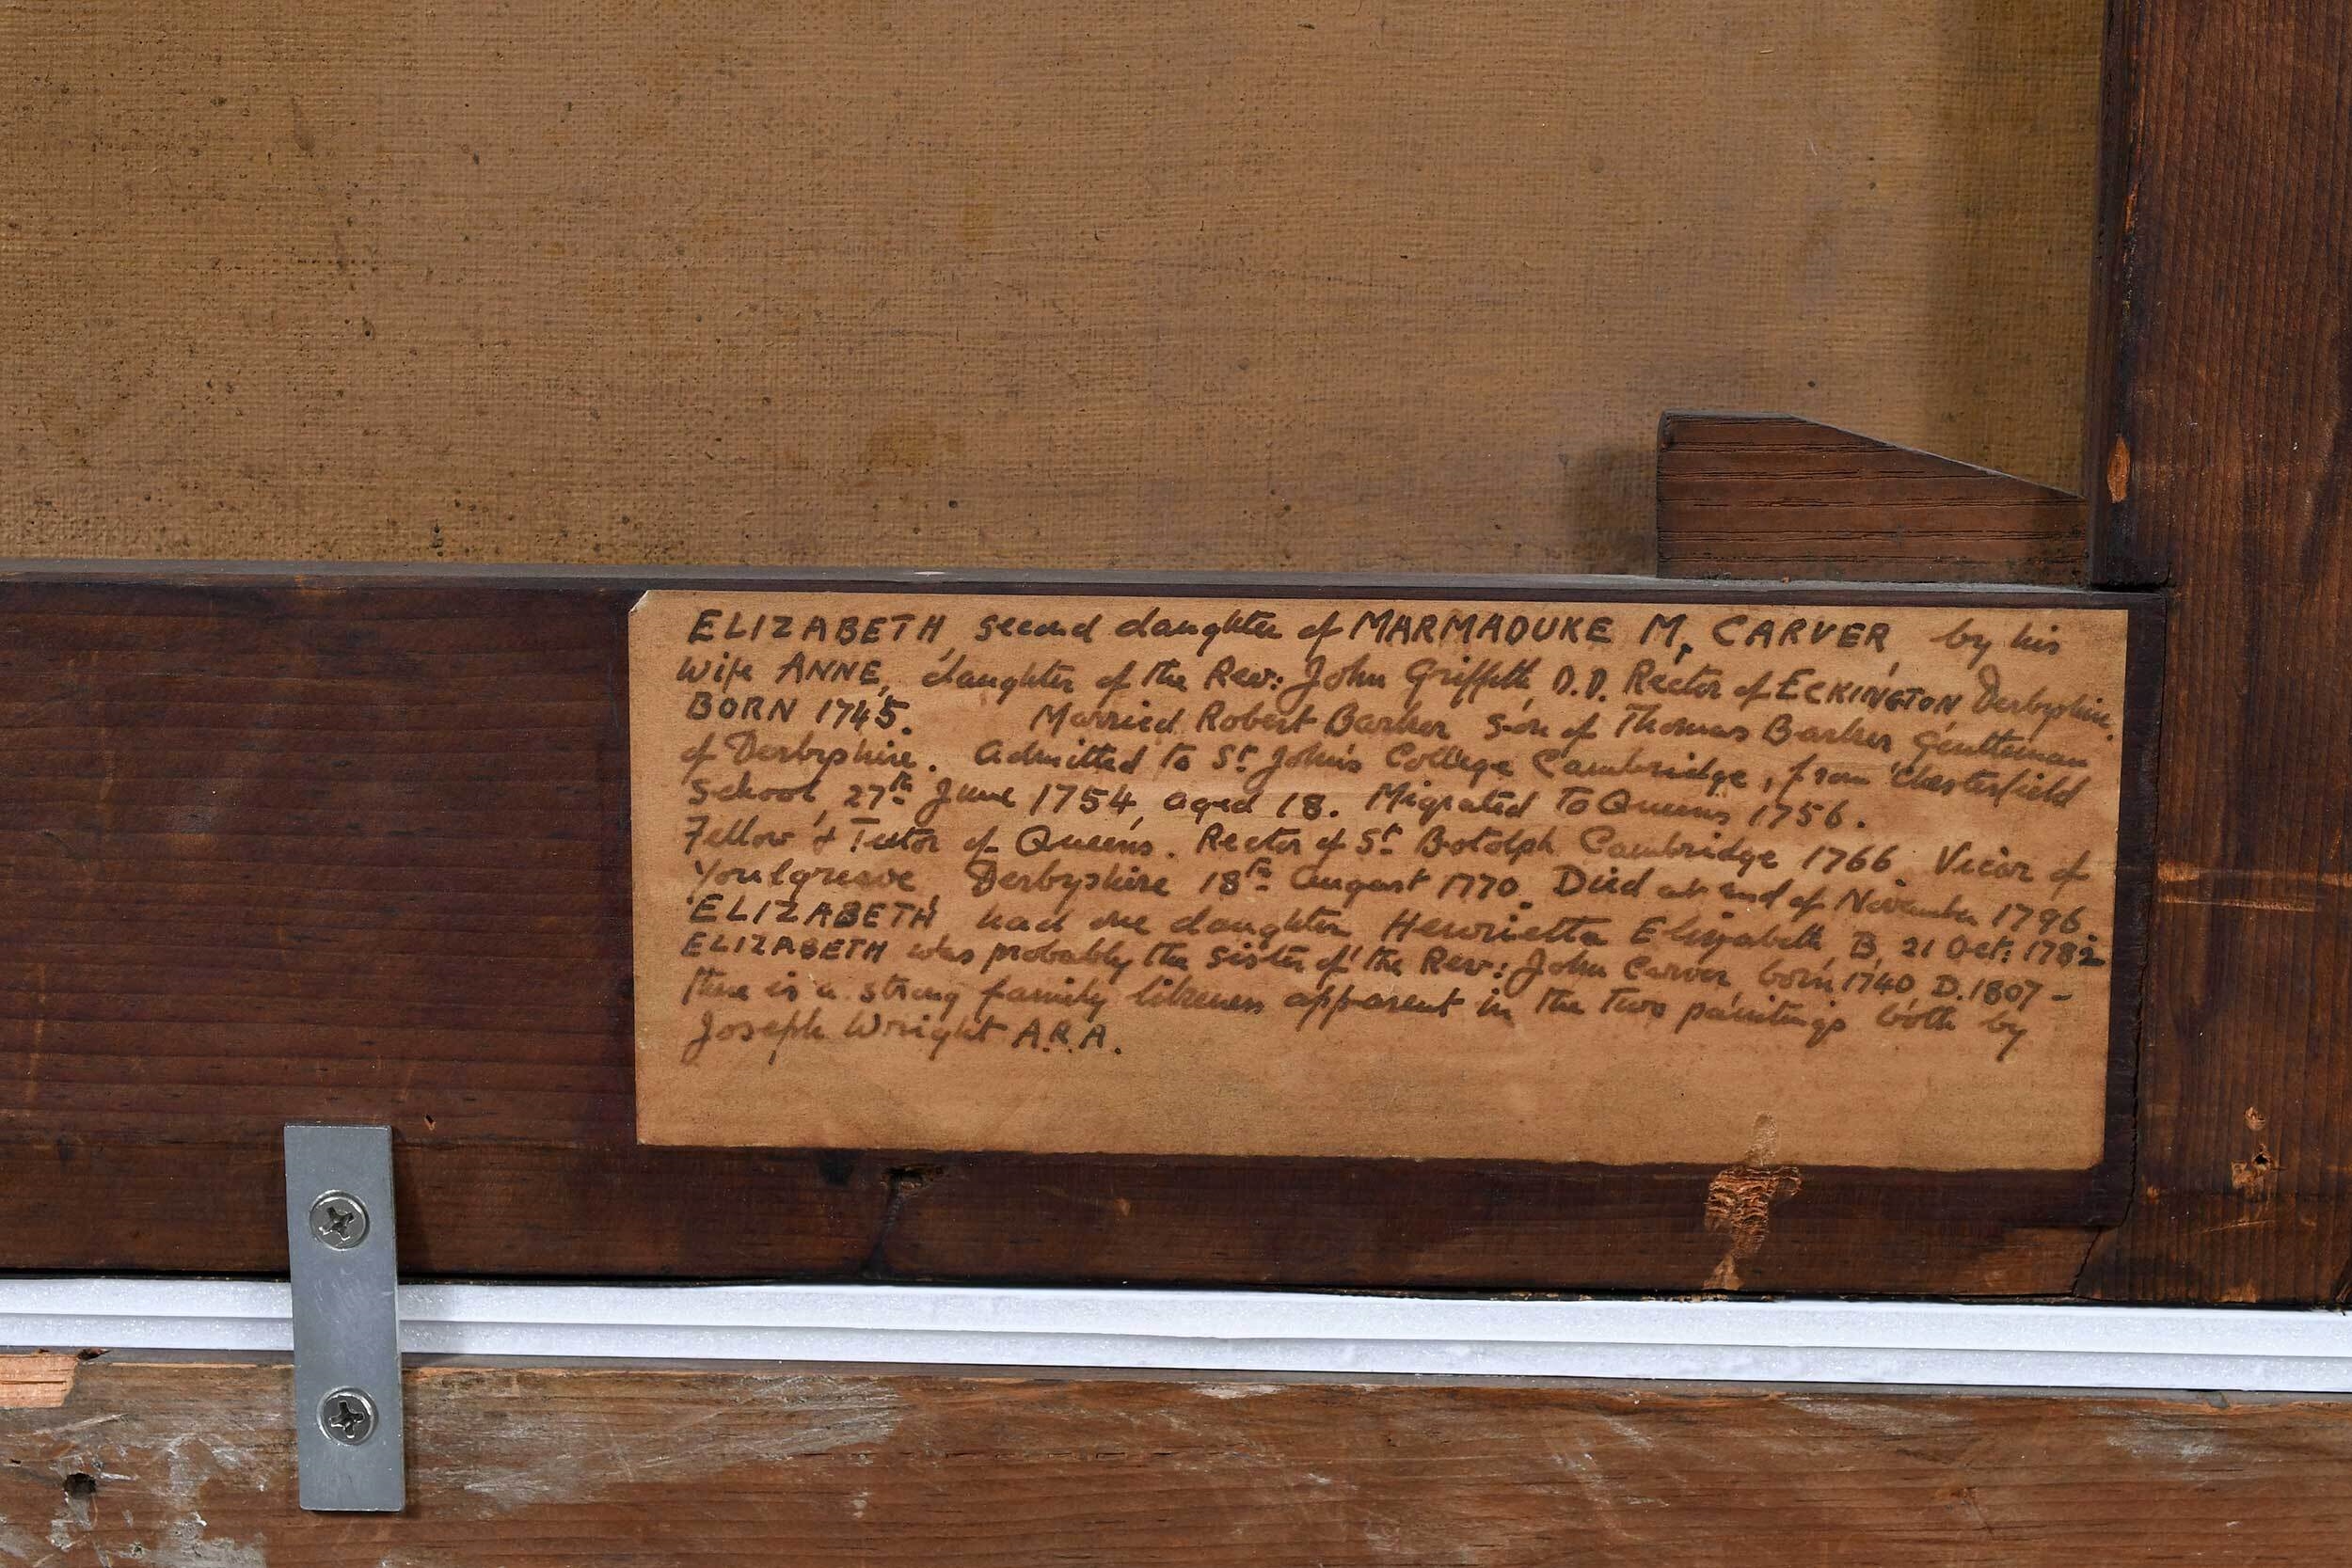 ELIZABETH, second daughter of MARMADUKE M, CARVER, by his
wife ANNE, daughter of the Rev: John Griffith, D.D. Rector of ECKINGTON Derbyshire.
BORN 1745. Married Robert Barker son of Thomas Barker gentleman
of Derbyshire. Admitted to St John's College Cambridge, from Chesterfield
School, 27th June 1754, aged 18. Migrated to Queens 1756.
Fellow & Tutor of Queens. Rector of St Botolph Cambridge 1766. Vicar of
Youlgreave, Derbyshire 18th August 1770. Died at end of November 1796.
ELIZABETH, had one daughter Henrietta Elizabeth, B, 21 Oct: 1782
ELIZABETH was probably the sister of the Rev: John Carver, born 1740 D. 1807 -
there is a strong family likeness apparent in the two paintings both by
Joseph Wright A.R.A.